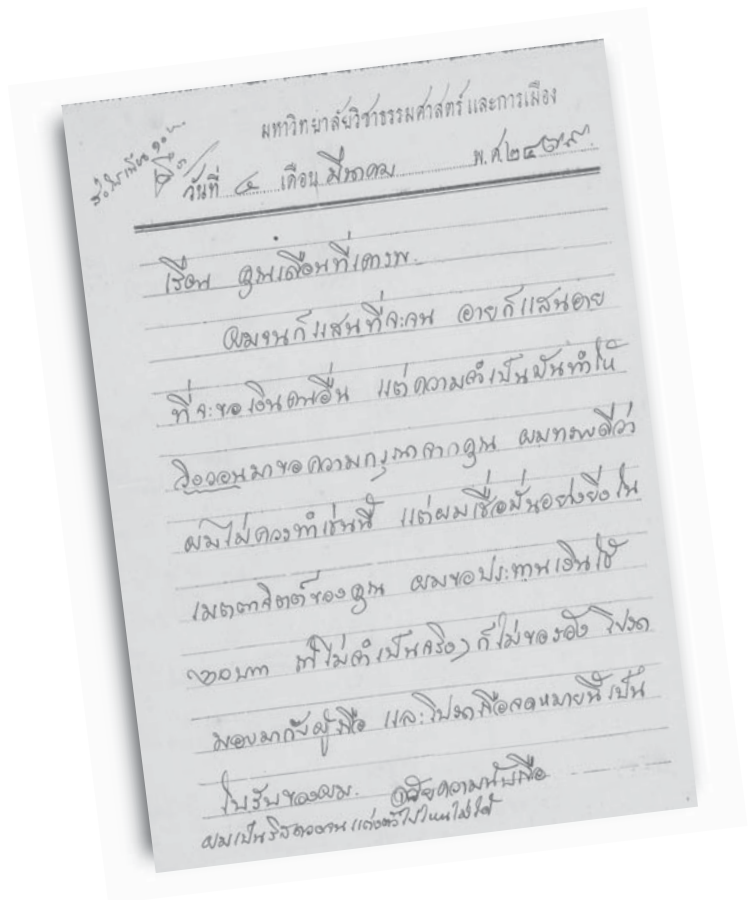 มหาวิทยาลัยวิชาธรรมศาสตร์และการเมือง
วันที่ ๔ เดือน มีนาคม พ.ศ. ๒๔๗๙
เรียน คุณเลื่อนที่เคารพ
ผมจนก็แสนที่จะจน อายก็แสนอาย
ที่จะขอเงินคนอื่น แต่ความจำเป็นมันทำให้
วิงวอนมาขอความกรุณาจากคุณ ผมทราบดีว่า
ผมไม่ควรทำเช่นนี้ แต่ผมเชื่อมั่นอย่างยิ่งใน
เมตตาจิตต์ของคุณ ผมขอประทานเงินใช้
ถ้าไม่จำเป็นจริงๆ ก็ไม่ขอ โปรด
มอบมากับผู้ถือ และโปรดถือจดหมายนี้เป็น
ใบรับของผม. ด้วยความนับถือ
ผมเป็น แต่งตัวไปไหนไม่ได้